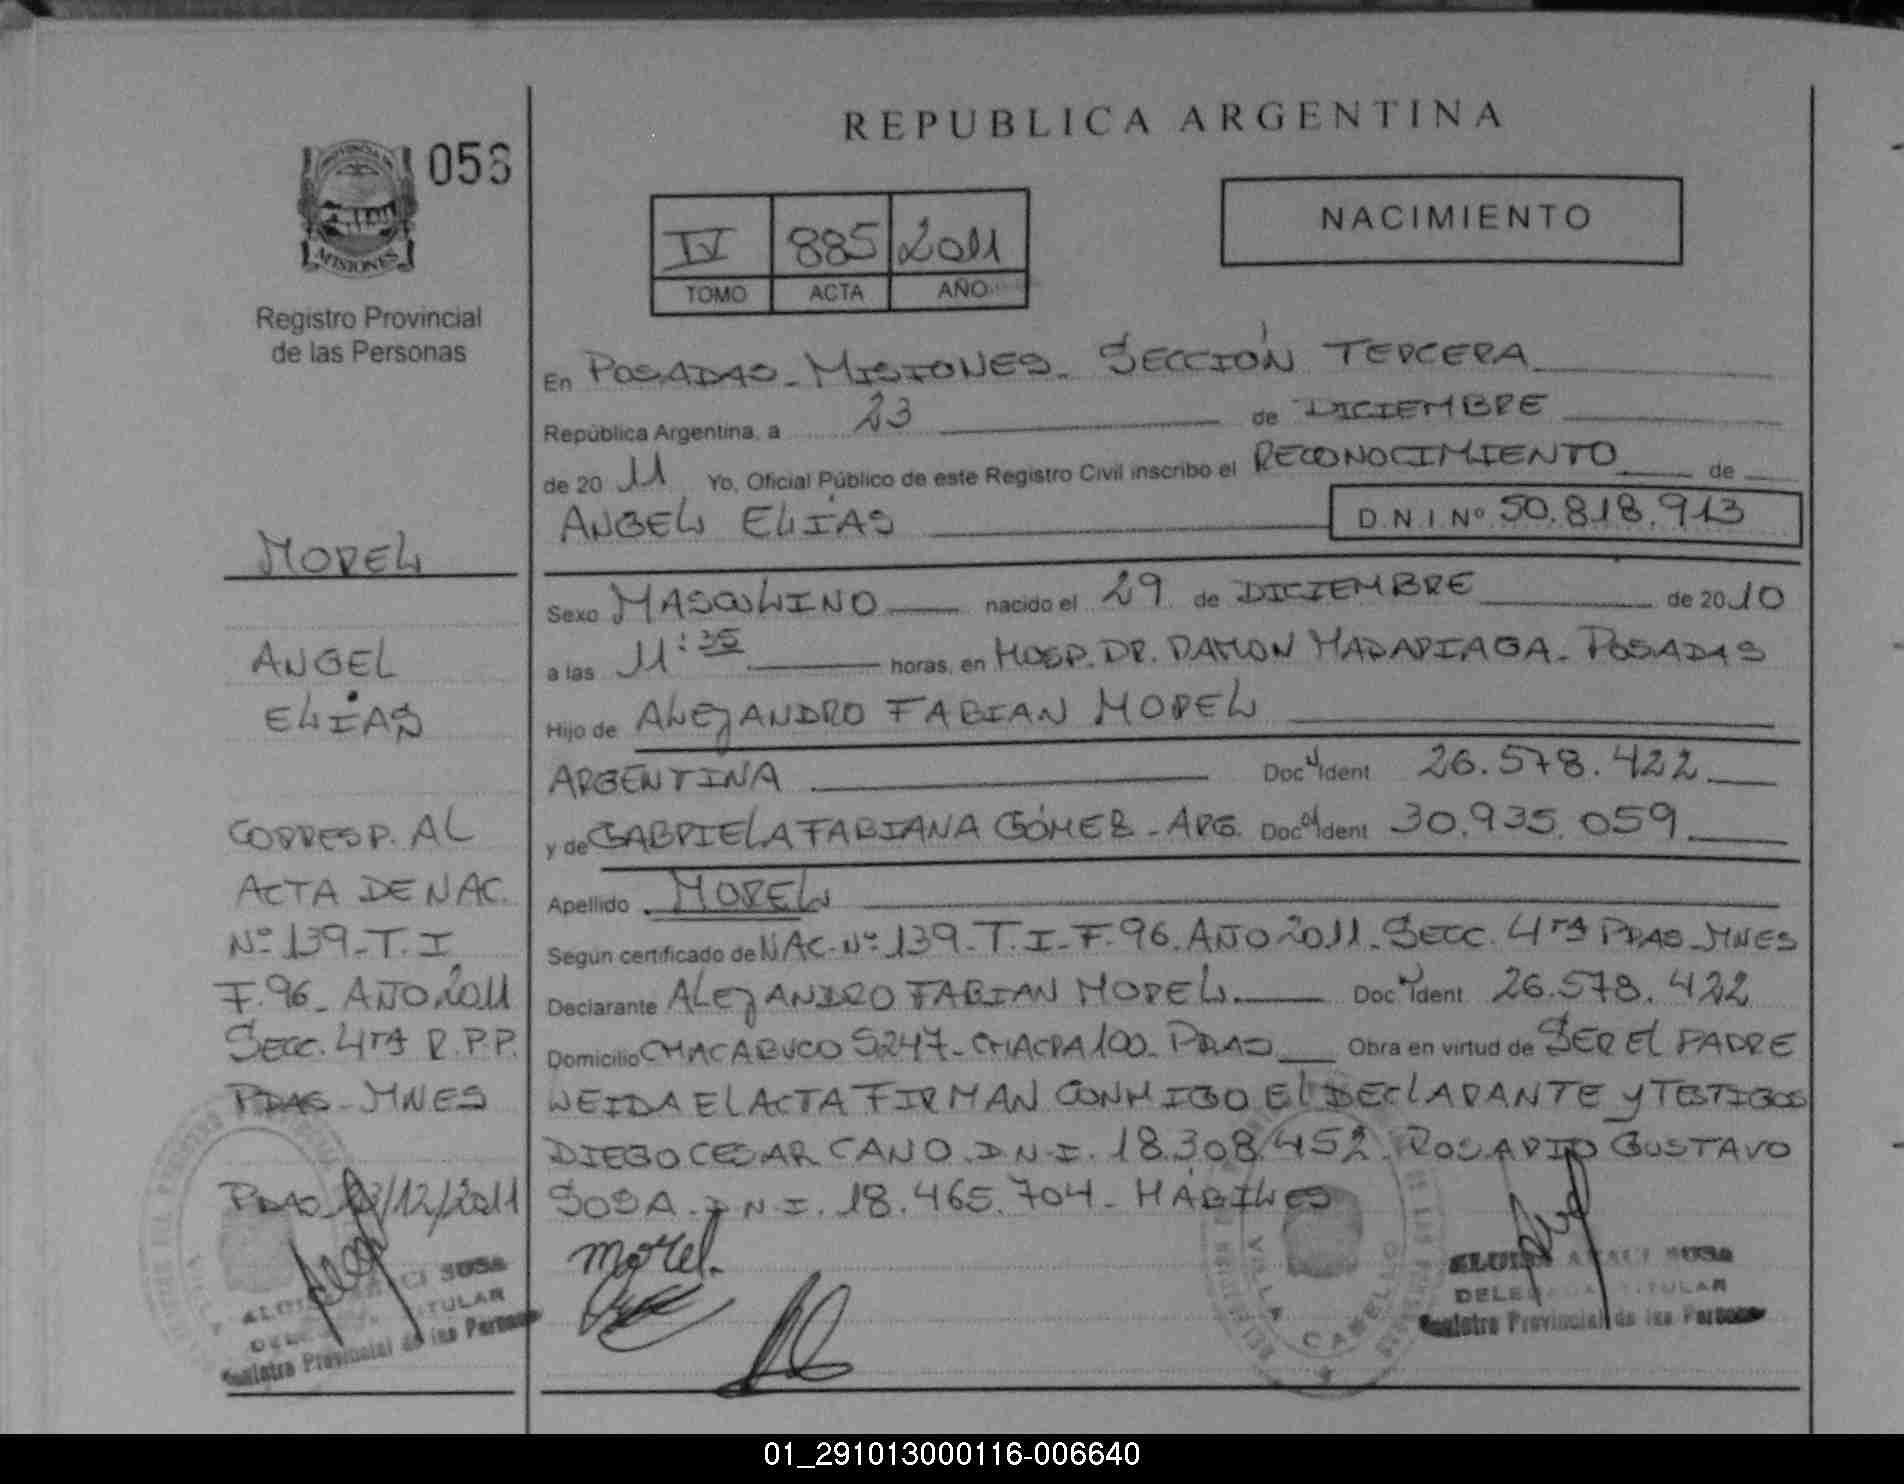 REPUBLICA ARGENTINA
PROVINCIA DE
MISIONES
Registro Provincial
de las Personas
IV 885 2011
TOMO ACTA AÑO
NACIMIENTO
En POSADAS - MISIONES - SECCIÓN TERCERA
República Argentina, a 23 de DICIEMBRE
de 20 11 Yo, Oficial Público de este Registro Civil inscribo el RECONOCIMIENTO de
ANGEL ELÍAS D.N.I Nº 50.818.913
Sexo MASCULINO nacido el 29 de DICIEMBRE de 20 10
a las 11:35 horas, en HOSP. DR. RAMON MADARIAGA - POSADAS
Hijo de ALEJANDRO FABIAN MOREL
ARGENTINA Doc Ident 26.578.422
y de GABRIELA FABIANA GÓMEZ - ARG. Doc Ident 30.935.059
Apellido MOREL
Según certificado de NAC. Nº 139 - T. I - F. 96. AÑO 2011 - SECC. 4TA PDAS - MNES
Declarante ALEJANDRO FABIAN MOREL Doc Ident 26.578.422
Domicilio CHACABUCO 5247 - CHACRA 100 - PDAS Obra en virtud de SER EL PADRE
LEIDA EL ACTA FIRMAN CONMIGO EL DECLARANTE Y TESTIGOS
DIEGO CESAR CANO. D.N.I. 18.308.452. ROSARIO GUSTAVO
SOSA. D.N.I. 18.465.704 - HÁBILES
morel.
VILLA CABELLO
SOSA
TITULAR
Registro Provincial de las Personas
MOREL
ANGEL
ELÍAS
CORRESP. AL
ACTA DE NAC.
Nº 139 - T. I
F. 96 - AÑO 2011
SECC. 4TA R.P.P.
PDAS - MNES
PDAS 23/12/2011
SOSA
TITULAR
Registro Provincial de las Personas
01_291013000116-006640